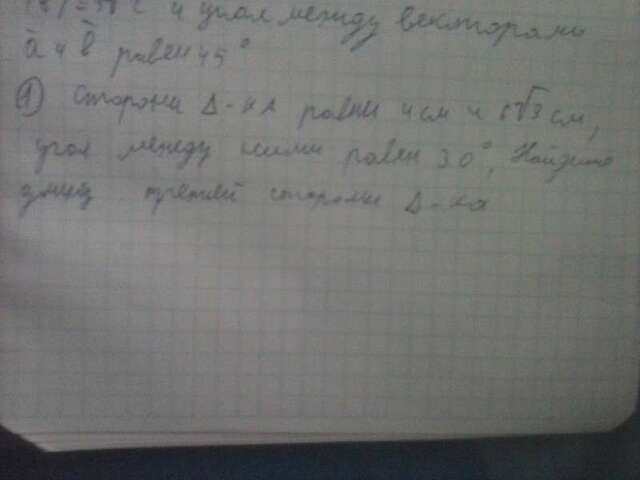 и угол между векторами
a и b равен 45°
① Стороны Δ-ка равны 4 см и 6√3 см,
угол между ними равен 30°, Найдите
длину третьей стороны Δ-ка